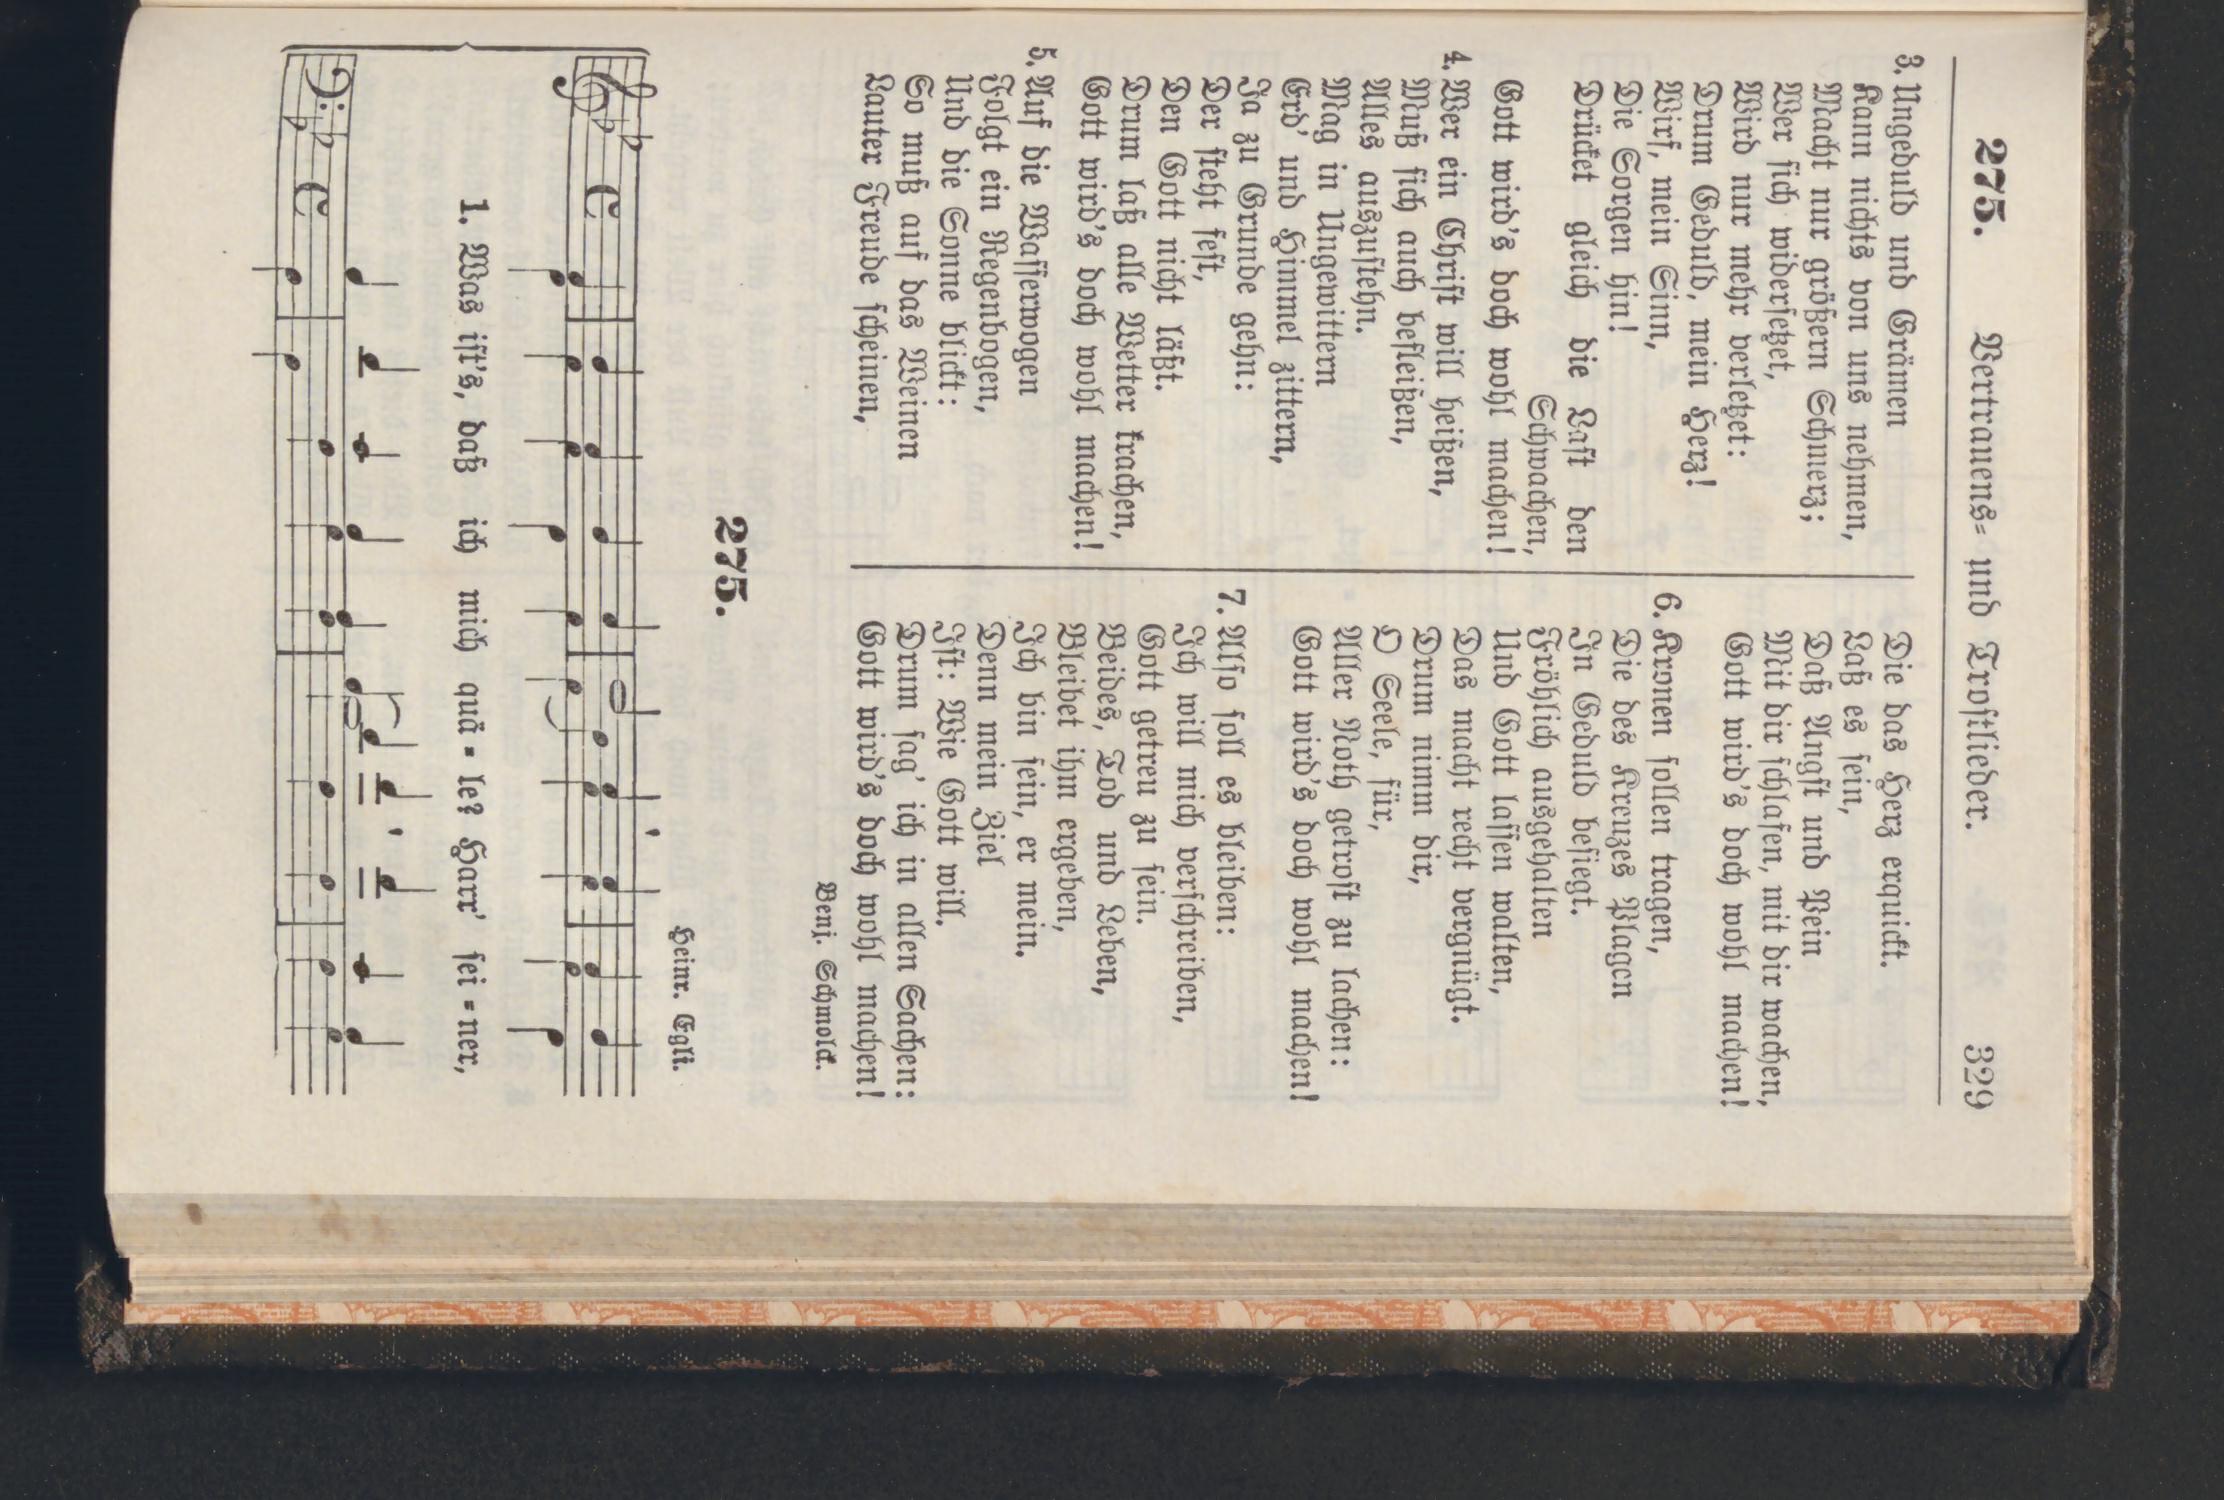 275. Vertrauens- und Trostlieder. 329
3. Ungeduld und Grämen
Kann nichts von uns nehmen,
Macht nur größern Schmerz;
Wer sich widersetzet,
Wird nur mehr verletzet:
Drum Geduld, mein Herz!
Wirf, mein Sinn,
Die Sorgen hin!
Drücket gleich die Last den
Schwachen,
Gott wird's doch wohl machen!
4. Wer ein Christ will heißen,
Muß sich auch befleißen,
Alles auszustehn.
Mag in Ungewittern
Erd' und Himmel zittern,
Ja zu Grunde gehn:
Der steht fest,
Den Gott nicht läßt.
Drum laß alle Wetter krachen,
Gott wird's doch wohl machen!
5. Auf die Wasserwogen
Folgt ein Regenbogen,
Und die Sonne blickt:
So muß auf das Weinen
Lauter Freude scheinen,
Die das Herz erquickt.
Laß es sein,
Daß Angst und Pein
Mit dir schlafen, mit dir wachen,
Gott wird's doch wohl machen!
6. Kronen sollen tragen,
Die des Kreuzes Plagen
In Geduld besiegt.
Fröhlich ausgehalten
Und Gott lassen walten,
Das macht recht vergnügt.
Drum nimm dir,
O Seele, für,
Aller Noth getrost zu lachen:
Gott wird's doch wohl machen!
7. Also soll es bleiben:
Ich will mich verschreiben,
Gott getreu zu sein.
Beides, Tod und Leben,
Bleibet ihm ergeben,
Ich bin sein, er mein.
Denn mein Ziel
Ist: Wie Gott will.
Drum sag' ich in allen Sachen:
Gott wird's doch wohl machen!
Benj. Schmolck.
275.
Heinr. Egli.
1. Was ist's, daß ich mich quä-le? Harr' sei-ner,